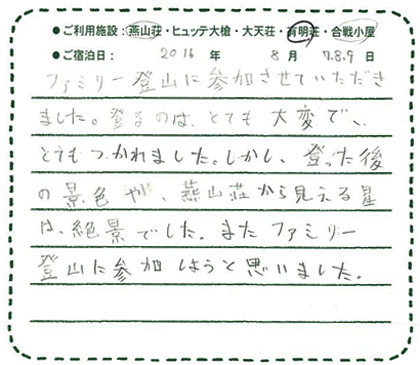 ●ご利用施設:燕山荘・ヒュッテ大槍・大天荘・有明荘・合戦小屋
●ご宿泊日: 2016年 8月 7.8.9日
ファミリー登山に参加させていただき
ました。登るのは、とても大変で、
とてもつかれました。しかし、登った後
の景色や、燕山荘から見える星
は、絶景でした。またファミリー
登山に参加しようと思いました。